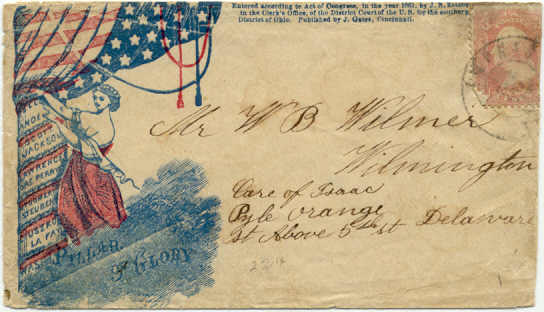 Entered according to Act of Congress, in the year 1861, by J. R.
in the Clerk's Office, of the District Court of the U. S. for the southern
District of Ohio. Published by J. Gates, Cincinnati.
SCOTT
JACKSON
PERRY
STEUBEN
LA FAY
PILLAR
OF GLORY
Mr W B Wilmer
Wilmington
Care of Isaac
Pyle Orange
St Above 5th st Delaware